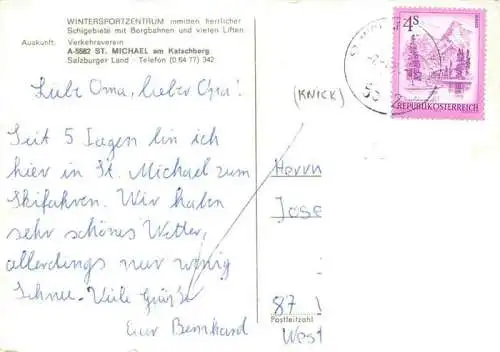 WINTERSPORTZENTRUM inmitten herrlicher
Schigebiete mit Bergbahnen und vielen Liften
Auskunft: Verkehrsverein
A-5582 ST. MICHAEL am Katschberg
Salzburger Land - Telefon (0 64 77) 342
4S
REPUBLIK ÖSTERREICH
Liebe Oma, lieber Opa!
(KNICK)
Seit 5 Tagen bin ich
hier in St. Michael zum
Skifahren. Wir haben
sehr schönes Wetter,
allerdings nur wenig
Schnee. Viele Grüße
Euer Bernhard
Herrn
Jose
87
Postleitzahl
West